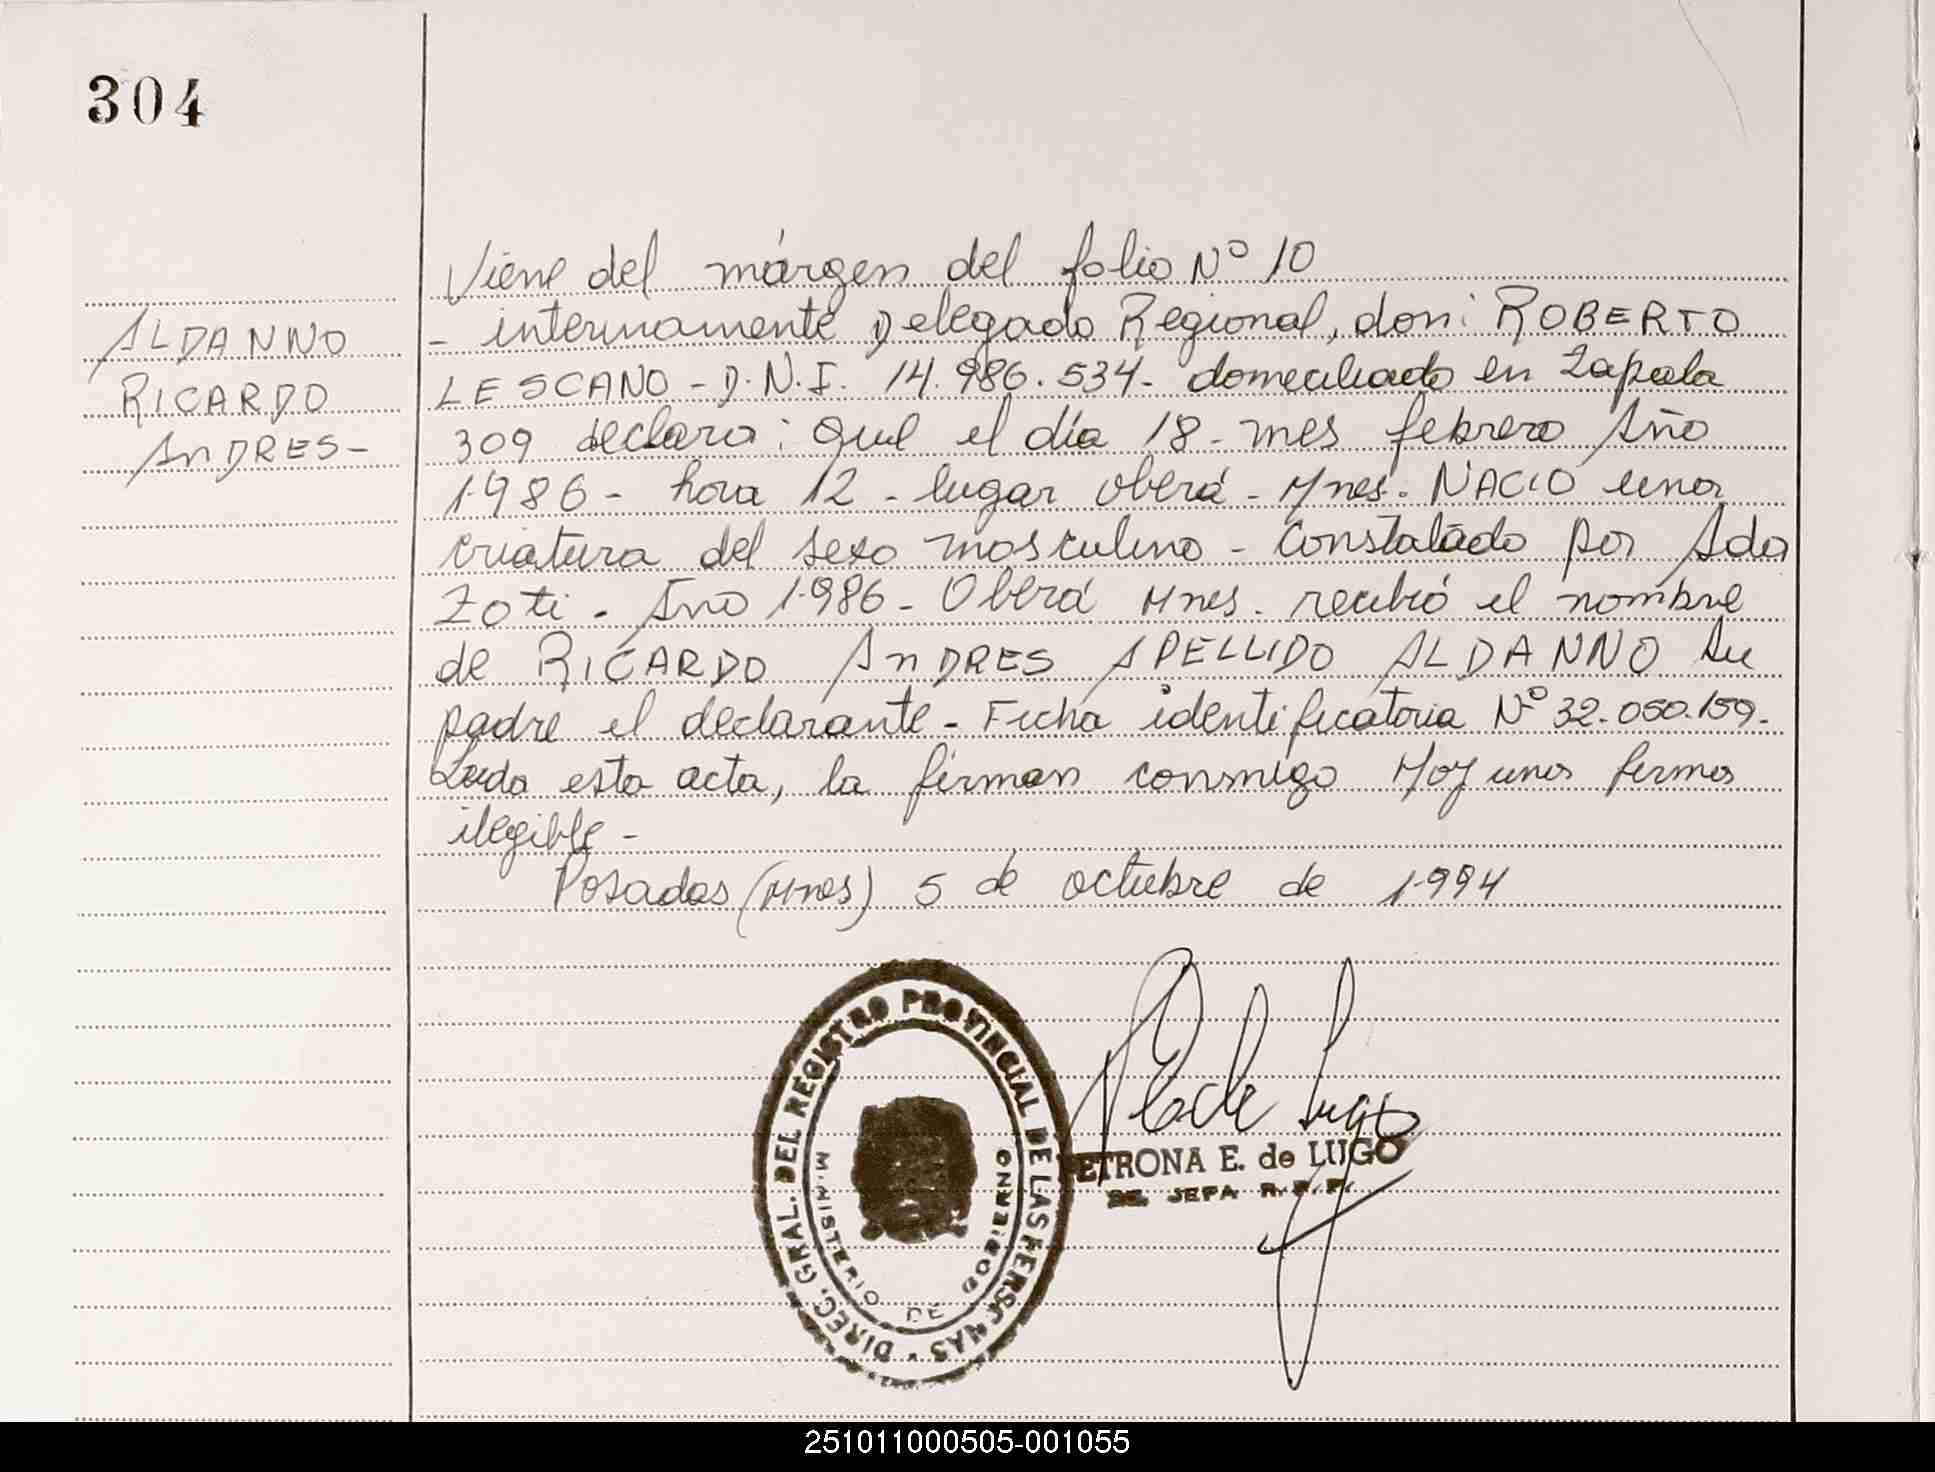 304
Viene del márgen del folio Nº 10
- internamente Delegado Regional, don: ROBERTO
LESCANO - D.N.I. 14.986.534 - domiciliado en Zapala
309 declara: que el día 18 - mes febrero Año
1.986 - hora 12 - lugar Oberá - Mnes. NACIO una
criatura del sexo masculino - Constatado por Ada
Zoti. Año 1.986 - Oberá Mnes. recibió el nombre
de RICARDO ANDRES APELLIDO ALDANNO Su
padre el declarante - Ficha identificatoria Nº 32.050.159.
Leida esta acta, la firman conmigo Hoy una firma
ilegible -
Posadas (Mnes) 5 de octubre de 1.994
ALDANNO
RICARDO
ANDRES -
DIREC. GRAL. DEL REGISTRO PROVINCIAL DE LAS PERSONAS
MINISTERIO DE GOBIERNO
P E de Lugo
PETRONA E. de LUGO
JEFA R.P.P.
251011000505-001055